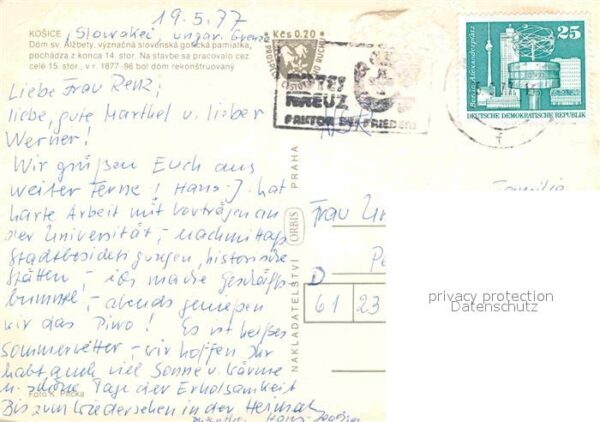 19.5.77
KOŠICE, Slowakei, ungar. Grenze
Dóm sv. Alžbety, význačná slovenská gotická pamiatka,
pochádza z konca 14. stor. Na stavbe sa pracovalo cez
celé 15. stor., v r. 1877-96 bol dóm rekonštruovaný
Liebe Frau Renz,
liebe, gute Marthel u. lieber
Werner!
Wir grüßen Euch aus
weiter Ferne! Hans-J. hat
harte Arbeit mit Vorträgen an
der Universität, - nachmittags
Stadtbesichtigungen, historische
Stätten, - ich mache Geschäfts
bummel, - abends genießen
wir das Pivo! Es ist heißes
Sommerwetter - wir hoffen Ihr
habt auch viel Sonne u. Wärme
u. schöne Tage der Erholsamkeit
Foto K. Plicka
Bis zum Wiedersehen in der Heimat
Kčs 0.20
ROTES
KREUZ
FAKTOR DES FRIEDENS
25
Berlin, Alexanderplatz
DEUTSCHE DEMOKRATISCHE REPUBLIK
NAKLADATELSTVÍ ORBIS PRAHA
Familie
Frau
D
61 23
privacy protection
Datenschutz